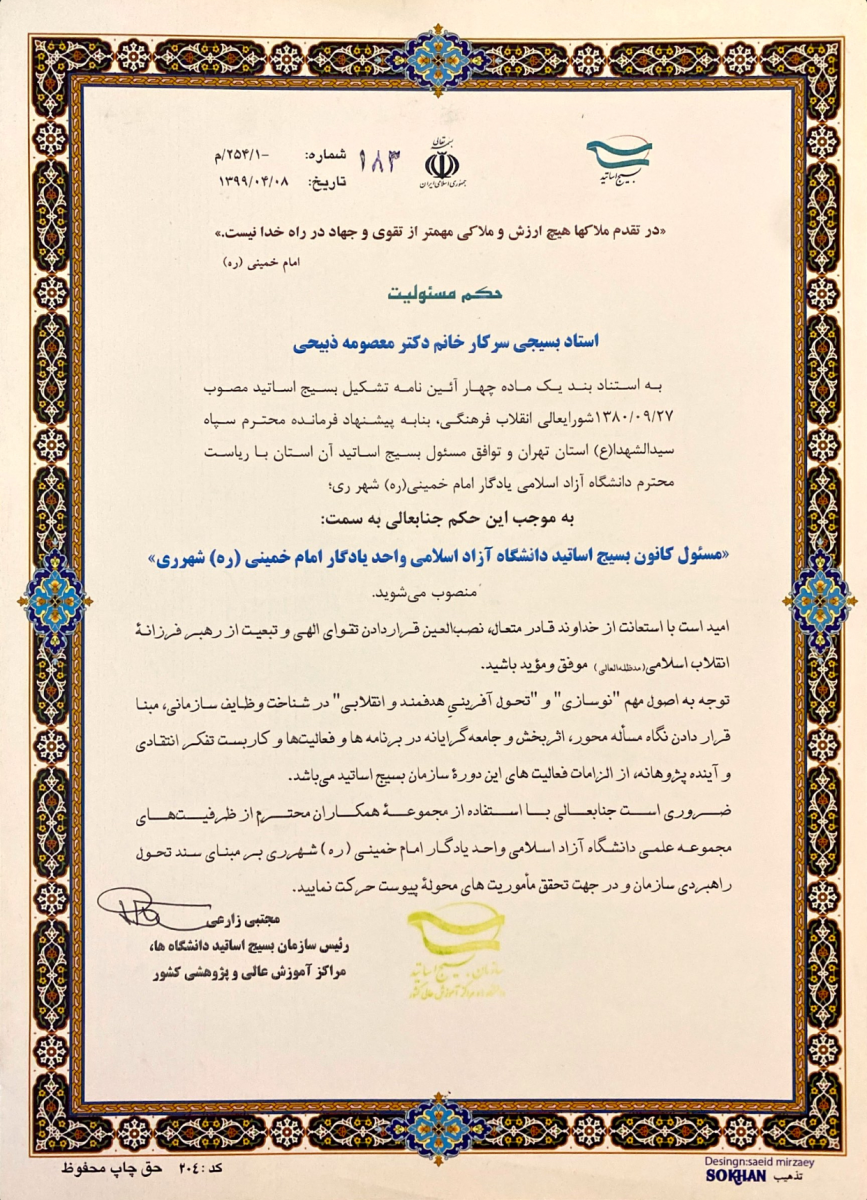 بسیج اساتید
بسمه تعالی
جمهوری اسلامی ایران
شماره: ۱۸۳ -۲۵۴/۱/م
تاریخ: ۱۳۹۹/۰۴/۰۸
«در تقدم ملاکها هیچ ارزش و ملاکی مهمتر از تقوی و جهاد در راه خدا نیست.»
امام خمینی (ره)
حکم مسئولیت
استاد بسیجی سرکار خانم دکتر معصومه ذبیحی
به استناد بند یک ماده چهار آئین نامه تشکیل بسیج اساتید مصوب
۱۳۸۰/۰۹/۲۷شورایعالی انقلاب فرهنگی، بنابه پیشنهاد فرمانده محترم سپاه
سیدالشهدا(ع) استان تهران و توافق مسئول بسیج اساتید آن استان با ریاست
محترم دانشگاه آزاد اسلامی یادگار امام خمینی(ره) شهر ری؛
به موجب این حکم جنابعالی به سمت:
«مسئول کانون بسیج اساتید دانشگاه آزاد اسلامی واحد یادگار امام خمینی (ره) شهرری»
منصوب می‌شوید.
امید است با استعانت از خداوند قادر متعال، نصب‌العین قراردادن تقوای الهی و تبعیت از رهبر فرزانهٔ
انقلاب اسلامی(مدظله‌العالی) موفق ومؤید باشید.
توجه به اصول مهم "نوسازی" و "تحول آفرینیِ هدفمند و انقلابی" در شناخت وظایف سازمانی، مبنا
قرار دادن نگاه مسأله محور، اثربخش و جامعه‌گرایانه در برنامه ها و فعالیت‌ها و کاربست تفکر انتقادی
و آینده پژوهانه، از الزامات فعالیت های این دورهٔ سازمان بسیج اساتید می‌باشد.
ضروری است جنابعالی با استفاده از مجموعهٔ همکاران محترم از ظرفیت‌های
مجموعه علمی دانشگاه آزاد اسلامی واحد یادگار امام خمینی (ره) شهرری بر مبنای سند تحول
راهبردی سازمان و در جهت تحقق مأموریت های محولهٔ پیوست حرکت نمایید.
مجتبی زارعی
رئیس سازمان بسیج اساتید دانشگاه ها،
مراکز آموزش عالی و پژوهشی کشور
سازمان بسیج اساتید
دانشگاه‌ها و مراکز آموزش عالی کشور
کد : ۲۰۴ حق چاپ محفوظ
Desingn:saeid mirzaey
SOKHAN تذهیب